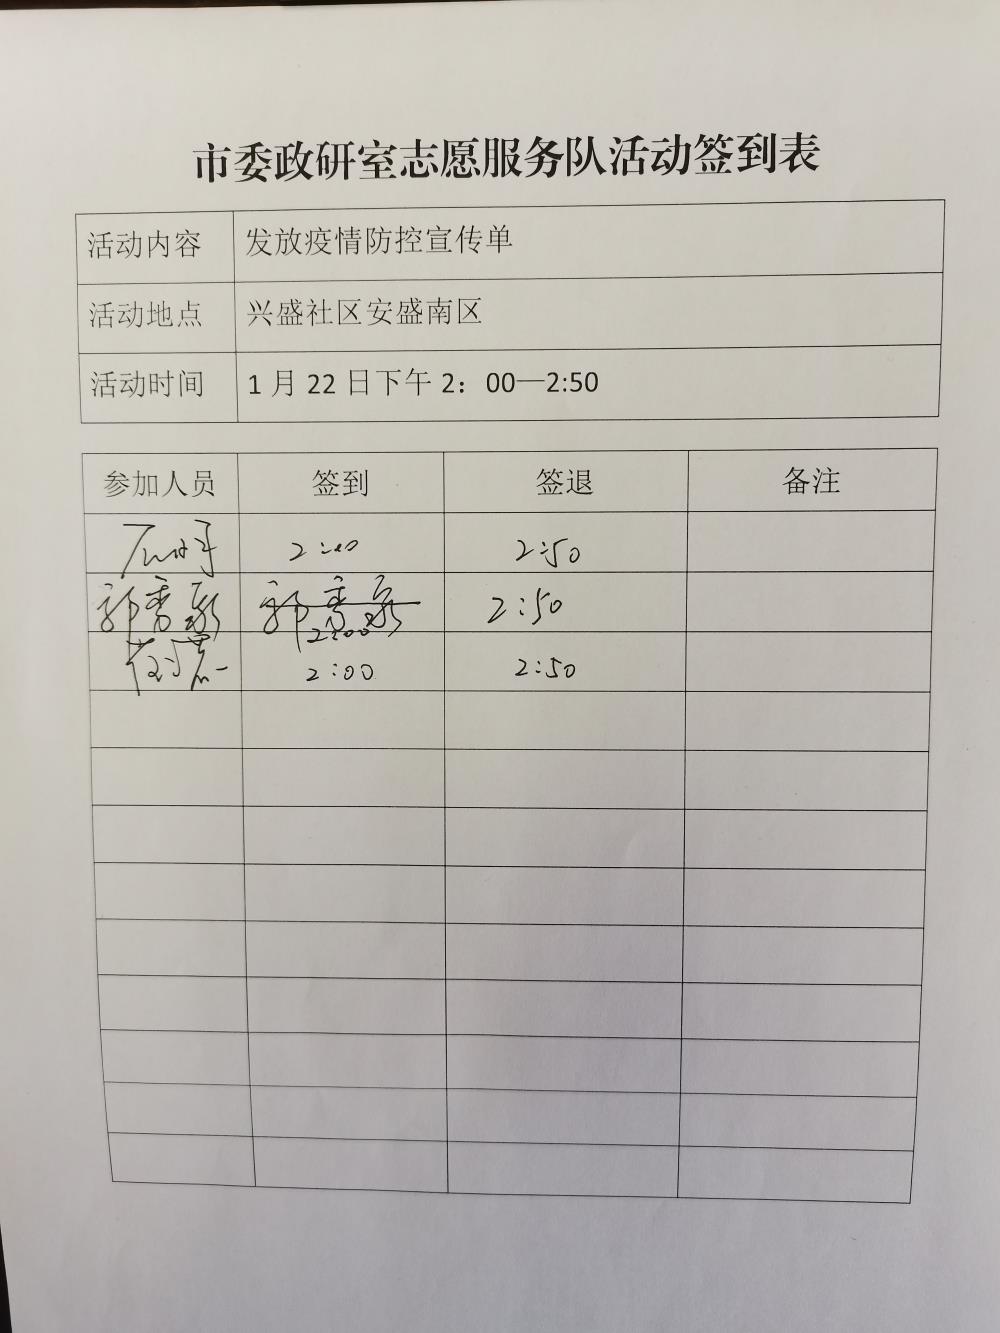 市委政研室志愿服务队活动签到表
活动内容 发放疫情防控宣传单
活动地点 兴盛社区安盛南区
活动时间 1月22日下午2：00—2:50
参加人员 签到 签退 备注
2:00 2:50
郭秀 郭秀 2:00 2:50
2:00 2:50